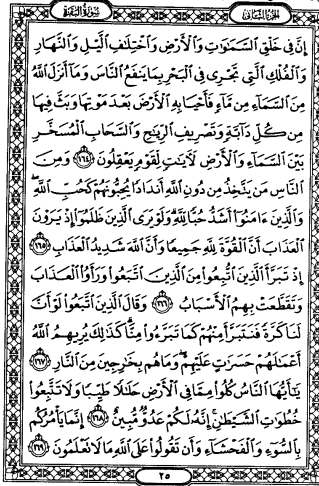 سُورَةُ البَقَرَةِ الجُزْءُ الثَّانِي
إِنَّ فِي خَلْقِ ٱلسَّمَٰوَٰتِ وَٱلْأَرْضِ وَٱخْتِلَٰفِ ٱلَّيْلِ وَٱلنَّهَارِ
وَٱلْفُلْكِ ٱلَّتِي تَجْرِي فِي ٱلْبَحْرِ بِمَا يَنفَعُ ٱلنَّاسَ وَمَآ أَنزَلَ ٱللَّهُ
مِنَ ٱلسَّمَآءِ مِن مَّآءٍ فَأَحْيَا بِهِ ٱلْأَرْضَ بَعْدَ مَوْتِهَا وَبَثَّ فِيهَا
مِن كُلِّ دَآبَّةٍ وَتَصْرِيفِ ٱلرِّيَٰحِ وَٱلسَّحَابِ ٱلْمُسَخَّرِ
بَيْنَ ٱلسَّمَآءِ وَٱلْأَرْضِ لَأٓيَٰتٍ لِّقَوْمٍ يَعْقِلُونَ ١٦٤ وَمِنَ
ٱلنَّاسِ مَن يَتَّخِذُ مِن دُونِ ٱللَّهِ أَندَادًا يُحِبُّونَهُمْ كَحُبِّ ٱللَّهِ ۖ
وَٱلَّذِينَ ءَامَنُوٓا۟ أَشَدُّ حُبًّا لِّلَّهِ ۗ وَلَوْ يَرَى ٱلَّذِينَ ظَلَمُوٓا۟ إِذْ يَرَوْنَ
ٱلْعَذَابَ أَنَّ ٱلْقُوَّةَ لِلَّهِ جَمِيعًا وَأَنَّ ٱللَّهَ شَدِيدُ ٱلْعَذَابِ ١٦٥
إِذْ تَبَرَّأَ ٱلَّذِينَ ٱتُّبِعُوا۟ مِنَ ٱلَّذِينَ ٱتَّبَعُوا۟ وَرَأَوُا۟ ٱلْعَذَابَ
وَتَقَطَّعَتْ بِهِمُ ٱلْأَسْبَابُ ١٦٦ وَقَالَ ٱلَّذِينَ ٱتَّبَعُوا۟ لَوْ أَنَّ
لَنَا كَرَّةً فَنَتَبَرَّأَ مِنْهُمْ كَمَا تَبَرَّءُوا۟ مِنَّا ۗ كَذَٰلِكَ يُرِيهِمُ ٱللَّهُ
أَعْمَٰلَهُمْ حَسَرَٰتٍ عَلَيْهِمْ ۖ وَمَا هُم بِخَٰرِجِينَ مِنَ ٱلنَّارِ ١٦٧
يَٰٓأَيُّهَا ٱلنَّاسُ كُلُوا۟ مِمَّا فِي ٱلْأَرْضِ حَلَٰلًا طَيِّبًا وَلَا تَتَّبِعُوا۟
خُطُوَٰتِ ٱلشَّيْطَٰنِ ۚ إِنَّهُۥ لَكُمْ عَدُوٌّ مُّبِينٌ ١٦٨ إِنَّمَا يَأْمُرُكُم
بِٱلسُّوٓءِ وَٱلْفَحْشَآءِ وَأَن تَقُولُوا۟ عَلَى ٱللَّهِ مَا لَا تَعْلَمُونَ ١٦٩
٢٥